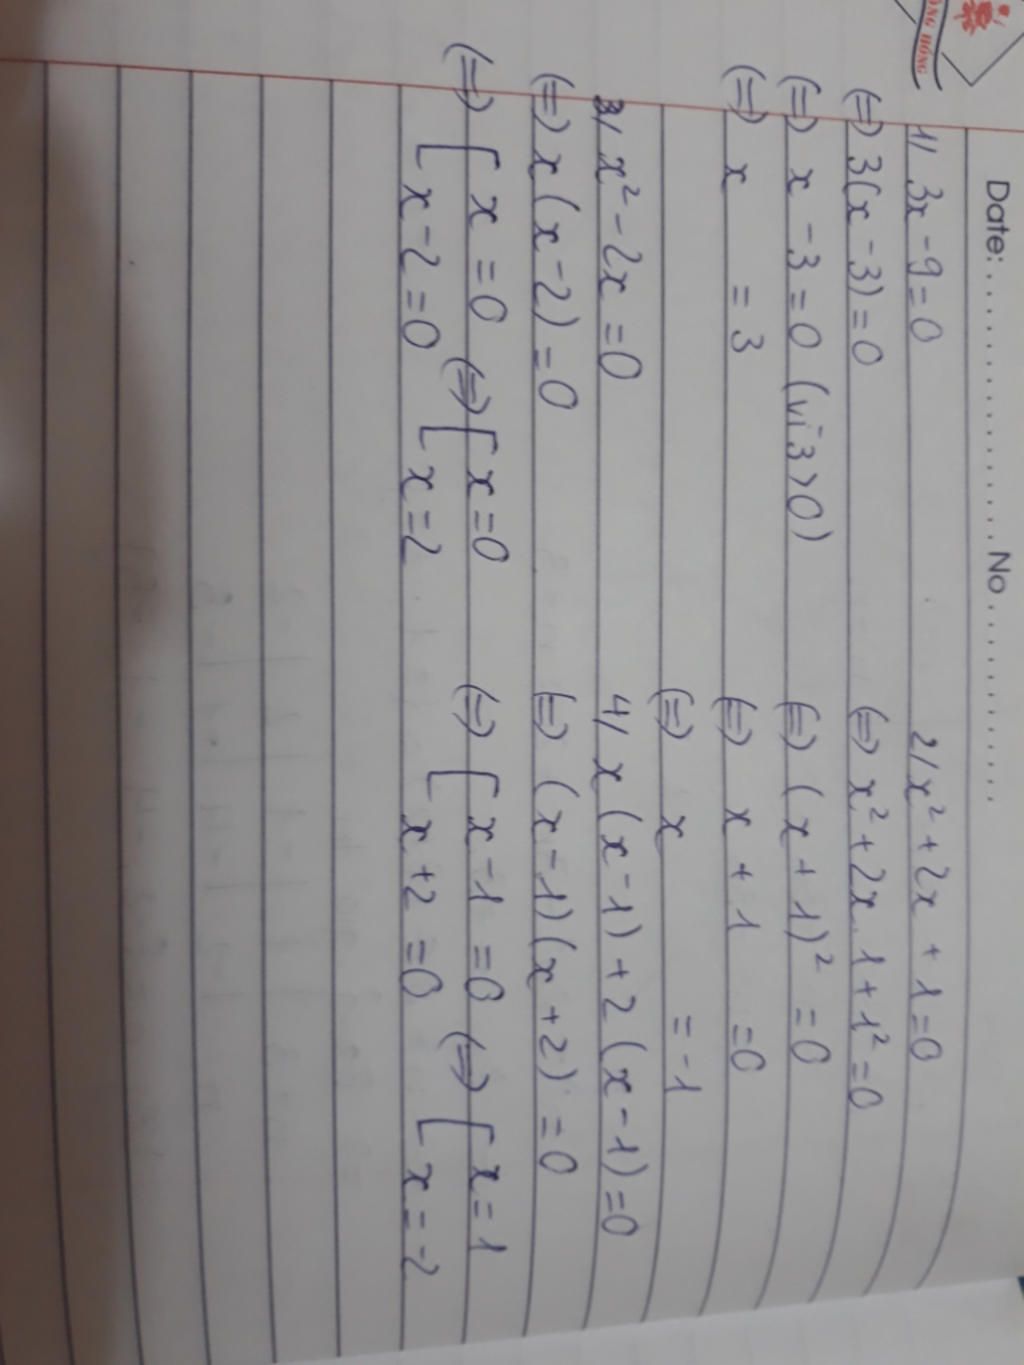 ÔNG HỒNG
Date: ........................ No ....................
1/ 3x - 9 = 0
(=) 3(x - 3) = 0
(=) x - 3 = 0 (vì 3 > 0)
(=) x = 3
2/ x² + 2x + 1 = 0
(=) x² + 2x . 1 + 1² = 0
(=) (x + 1)² = 0
(=) x + 1 = 0
(=) x = -1
3/ x² - 2x = 0
(=) x (x - 2) = 0
(=) [ x = 0 (=) [ x = 0
[ x - 2 = 0 [ x = 2
4/ x (x - 1) + 2 (x - 1) = 0
(=) (x - 1)(x + 2) = 0
(=) [ x - 1 = 0 (=) [ x = 1
[ x + 2 = 0 [ x = -2